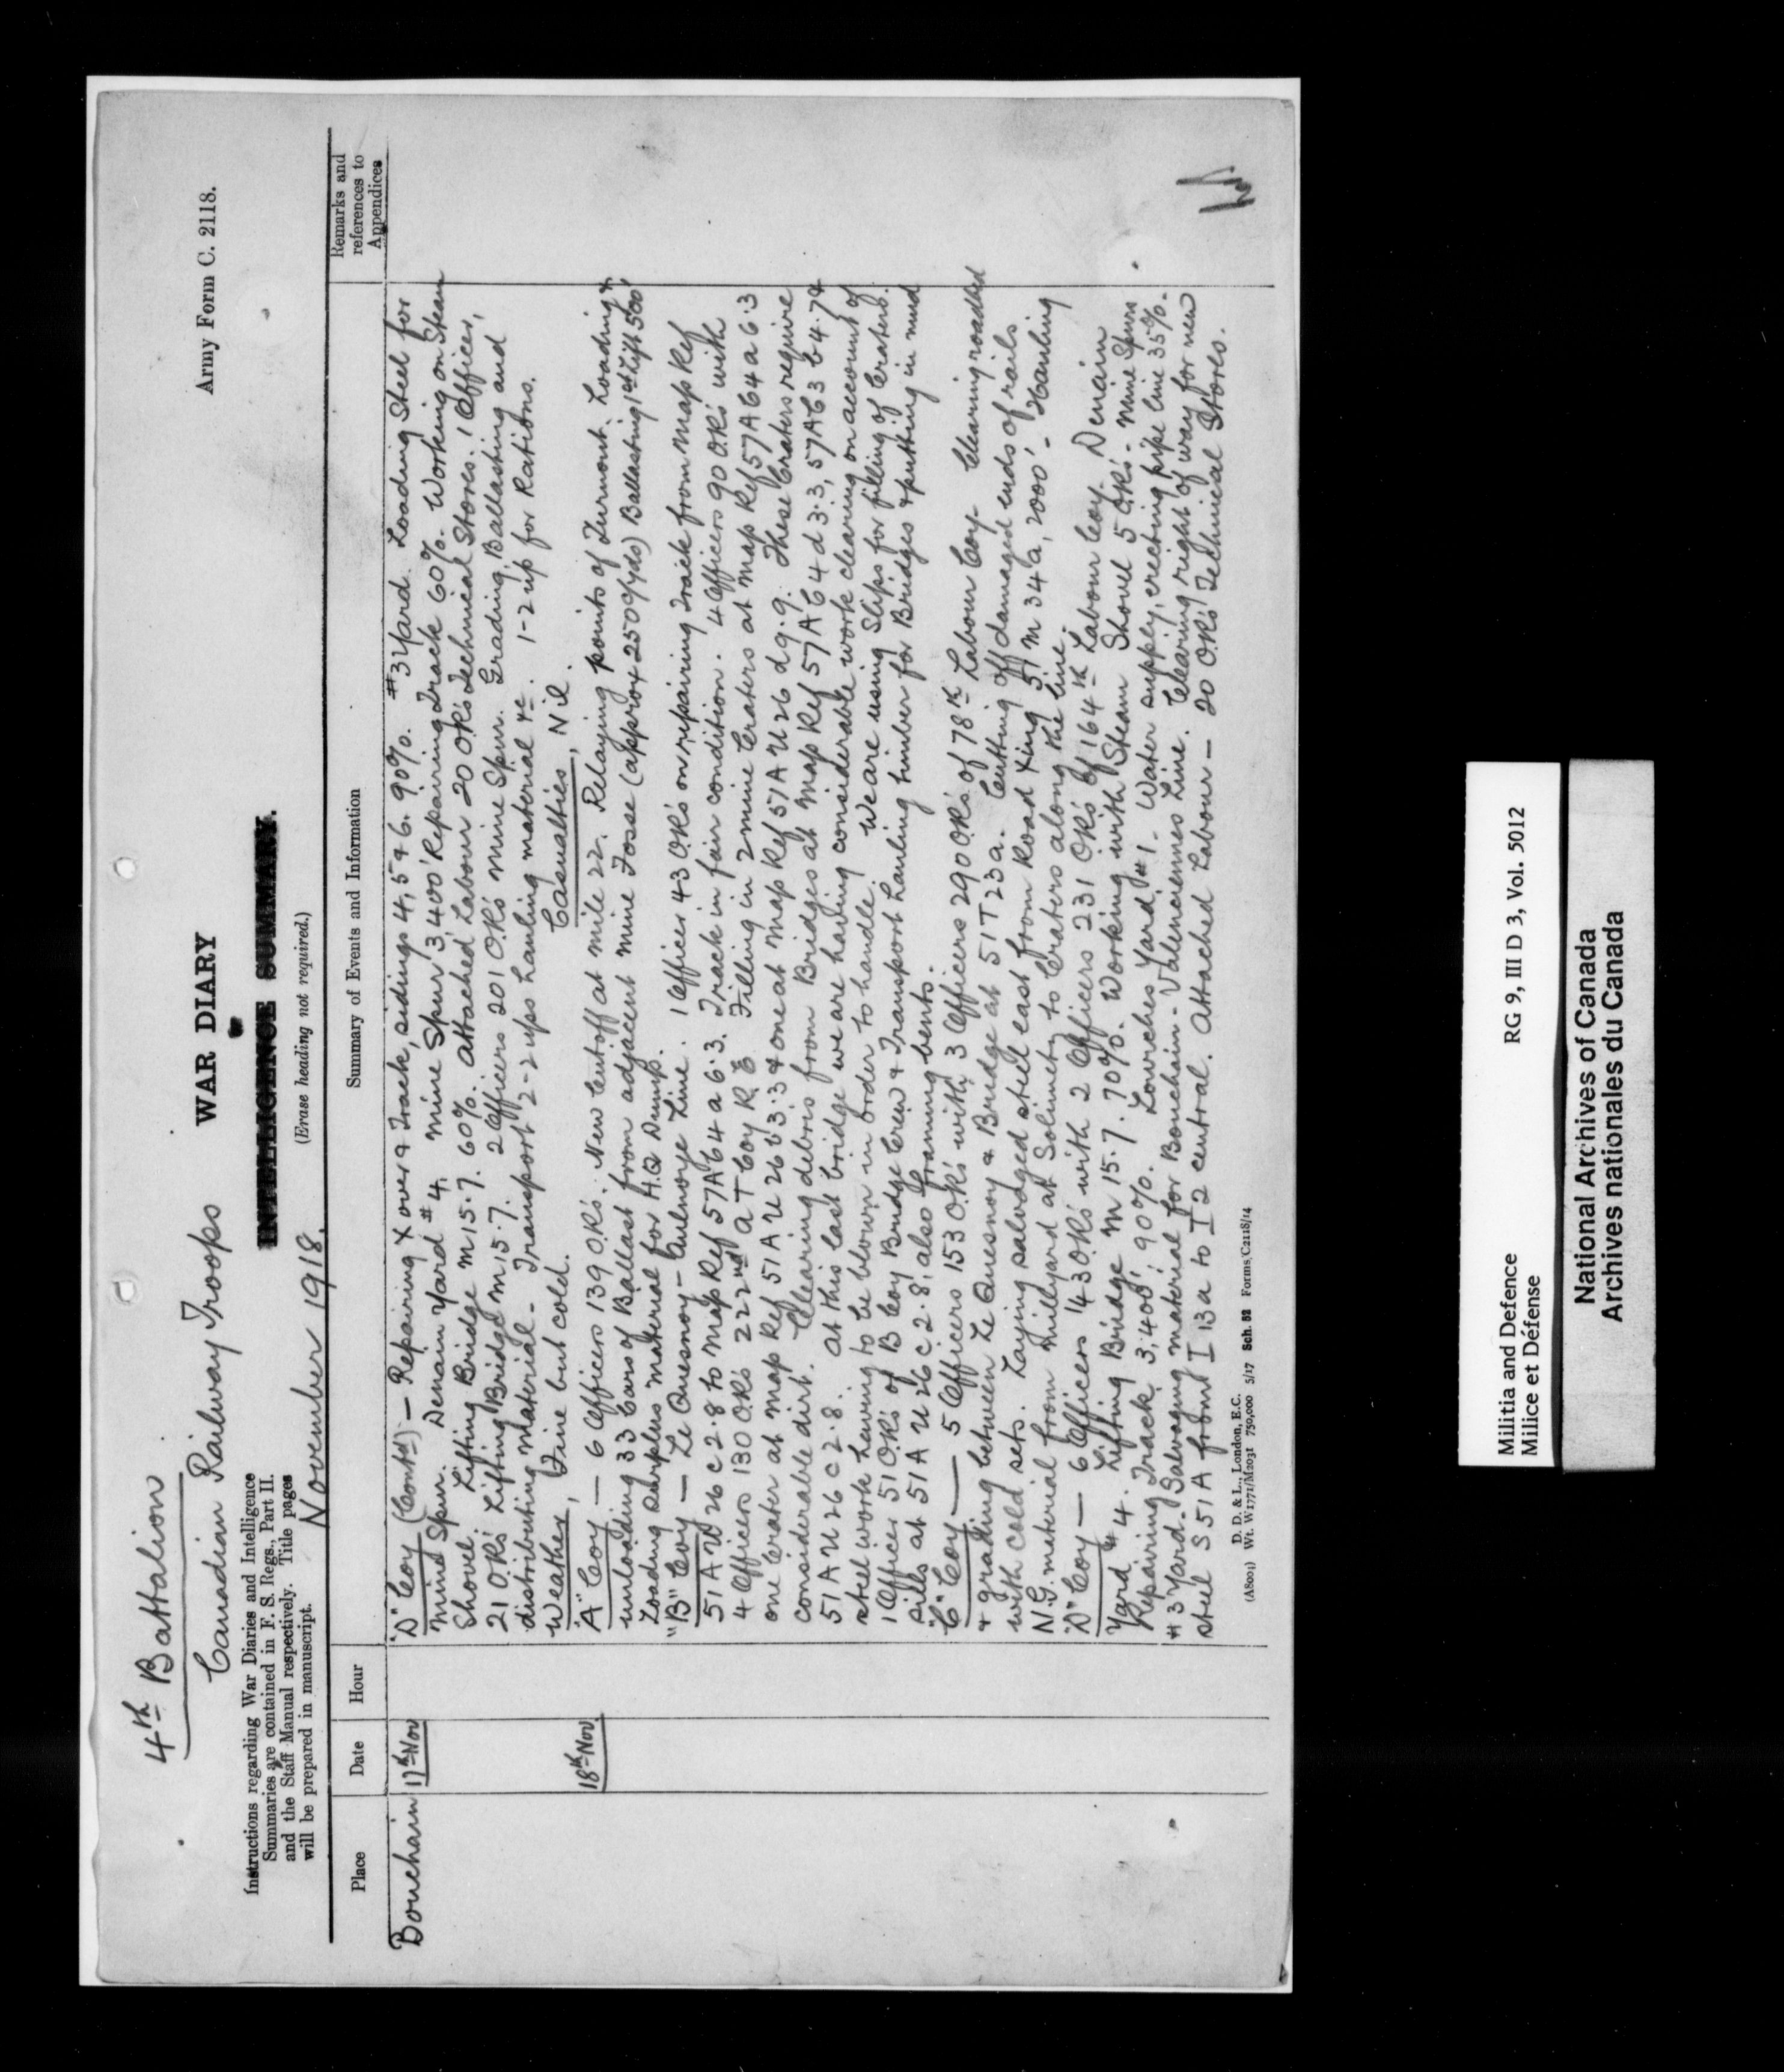 4th Battalion
Canadian Railway Troops
WAR DIARY
or
INTELLIGENCE SUMMARY.
(Erase heading not required.)
Army Form C. 2118.
Instructions regarding War Diaries and Intelligence
Summaries are contained in F. S. Regs., Part II.
and the Staff Manual respectively. Title pages
will be prepared in manuscript.
November 1918.
Place Date Hour Summary of Events and Information Remarks and references to Appendices
Bouchain 17th Nov "D" Coy (Contd) — Repairing X over & Track, sidings 4, 5 & 6. 90%. #3 Yard. Loading Steel for
Mine Spur. Denain Yard #4. Mine Spur 3,400' Repairing Track 60%. Working on Steam
Shovel. Lifting Bridge M 15.7. 60%. Attached Labour 20 O.R's Technical Stores. 1 Officer,
21 O.R's Lifting Bridge M 15.7. 2 Officers 201 O.R's Mine Spur. Grading, Ballasting and
distributing Material. Transport 2-2 ups hauling material &c. 1-2 up for Rations.
Weather, Fine but cold. Casualties, Nil.
18th Nov. "A" Coy — 6 Officers 139 O.R's. New Cutoff at mile 22. Relaying points of Turnout. Loading &
unloading 33 Cars of Ballast from adjacent Mine Fosse (approx 250 c/yds) Ballasting 1st Lift 500'
Loading surplus material for H.Q Dump.
"B" Coy — Le Quesnoy - Aulnoye Line. 1 Officer 43 O.R's on repairing Track from Map Ref
51 A U 26 c 2.8 to Map Ref 57A B4 a 6.3. Track in fair condition. 4 Officers 90 O.R's with
4 Officers 130 O.R's 222nd A T Coy R E Filling in 2 mine Craters at Map Ref 57A B4 a 6.3
one Crater at Map Ref 51 A U 26 b 3.3 & one at Map Ref 51 A U 26 d 9.9. These Craters require
considerable dirt. Clearing debris from Bridges at Map Ref 57 A B 4 d 3.3, 57 A B 3 b 4.7 &
51 A U 26 c 2.8. At this last bridge we are having considerable work clearing on account of
steel work having to be blown in order to handle. We are using Slips for filling of Craters.
1 Officer 51 O.R's of B Coy Bridge Crew & Transport hauling timber for Bridges & putting in mud
sills at 51 A U 26 c 2.8, also framing bents.
"C" Coy — 5 Officers 153 O.R's with 3 Officers 290 O.R's of 78th Labour Coy - Clearing roadbed
& grading between Le Quesnoy & Bridge at 51 T 23 a. Cutting off damaged ends of rails
with cold sets. Laying salvaged steel east from Road Xing 51 M 34 a, 2000' - Hauling
N.G. material from Millyard at Solimety to Craters along the line.
"D" Coy — 6 Officers 143 O.R's with 2 Officers 231 O.R's of 164th Labour Coy. Denain
Yard #4. Lifting Bridge M 15.7. 70%. Working with Steam Shovel 5 O.R's - Mine Spurs
Repairing Track 3,400', 90%. Lourches Yard, #1. Water supply, erecting pipe line 35%.
#3 Yard. Salvaging material for Bouchain - Valenciennes Line. Clearing right of way for new
steel S 51 A from I 13 a to I 2 central. Attached Labour - 20 O.R's Technical Stores.
D. D. & L., London, E.C.
(A8001) Wt. W1771/M2031 750,000 5/17 Sch. 82 Forms/C2118/14
Militia and Defence RG 9, III D 3, Vol. 5012
Milice et Défense
National Archives of Canada
Archives nationales du Canada